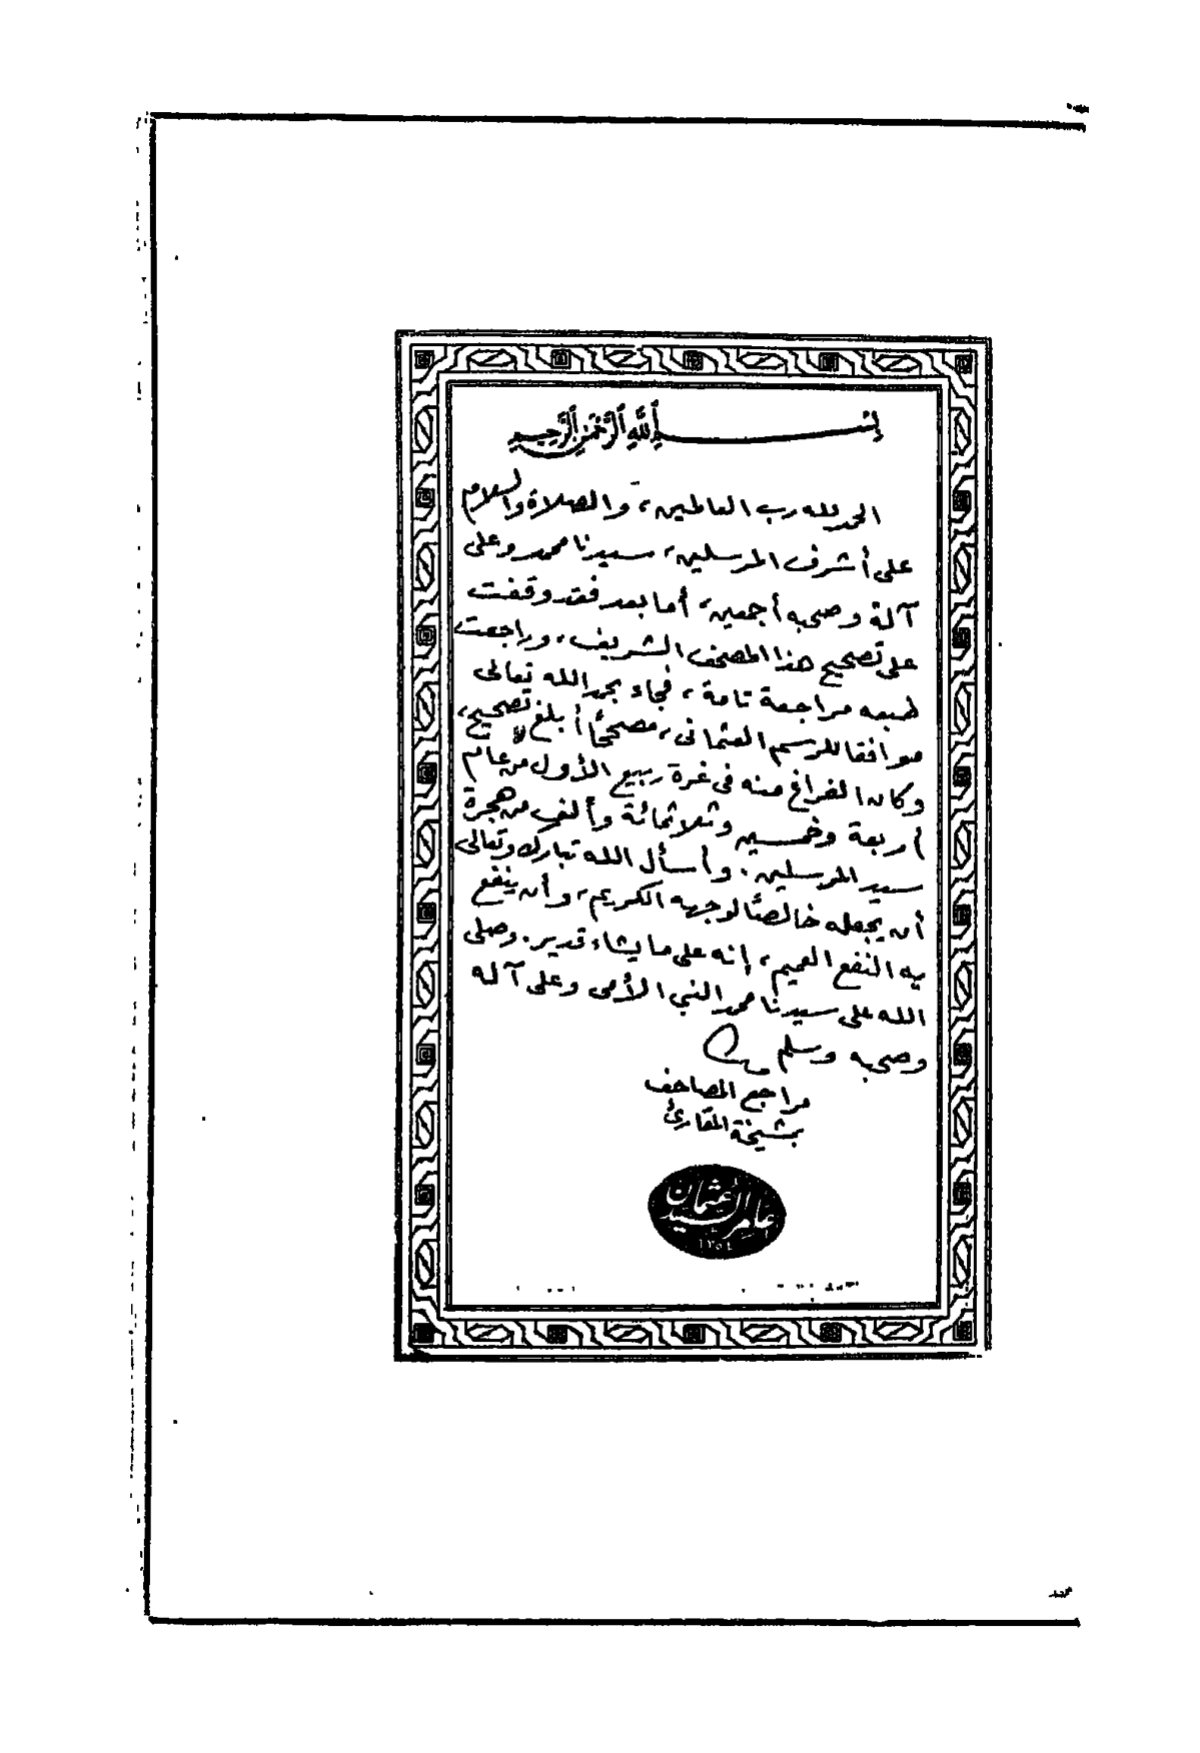 بِسْــــمِ ٱللَّهِ ٱلرَّحْمَٰنِ ٱلرَّحِيمِ
الحمد لله رب العالمين، والصلاة والسلام
على أشرف المرسلين، سيدنا محمد وعلى
آلة وصحبه أجمعين، أما بعد فقد وقفت
على تصحيح هذا المصحف الشريف، وراجعت
طبعه مراجعة تامة، فجاء بحمد الله تعالى
موافقا للرسم العثمانى، مصححًا أبلغ تصحيح،
وكان الفراغ منه فى غرة ربيع الأول من عام
أربعة وخمسين وثلاثمائة وألف من هجرة
سيد المرسلين. وأسأل الله تبارك وتعالى
أن يجعله خالصًا لوجهه الكريم، وأن ينفع
به النفع العميم، إنه على ما يشاء قدير. وصلى
الله على سيدنا محمد النبي الأمى وعلى آله
وصحبه وسلم
مراجع المصاحف
بمشيخة المقارئ
السيد عثمان
١٣٥٤